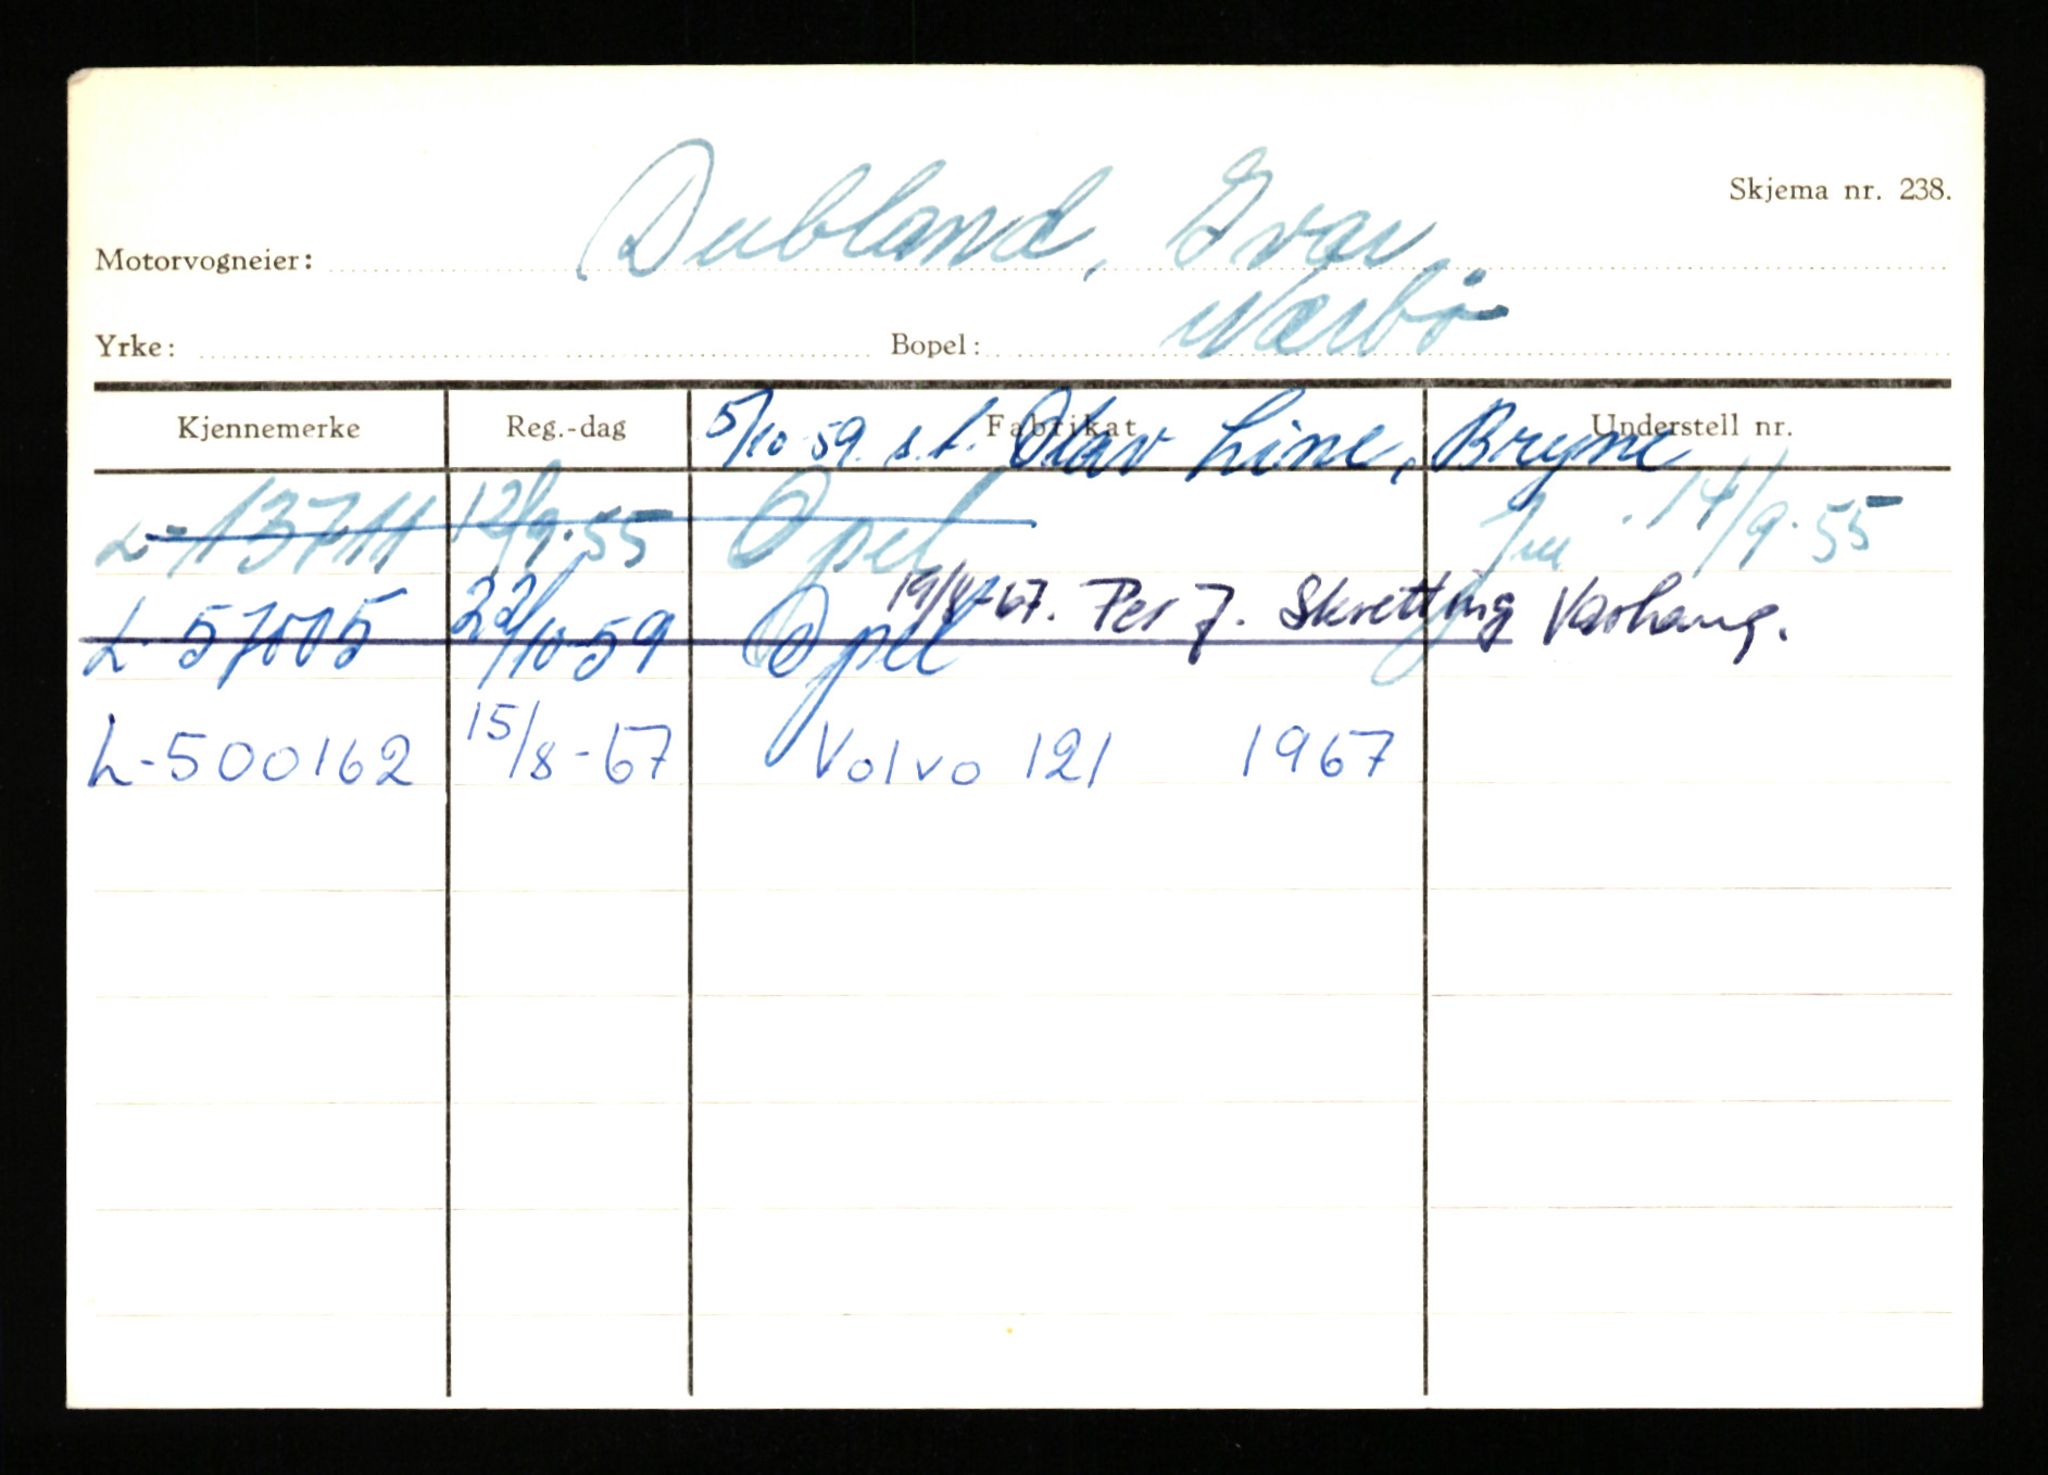 Skjema nr. 238.
Motorvogneier: Dubland, Ivar,
Nærbø
Yrke: Bopel:
Kjennemerke Reg.-dag Fabrikat Understell nr.
5/10-59. s.t. Olav Line, Bryne
L-13711 12/9-55 Opel 14/9-55
19/8-67. Per J. Skretting Varhaug.
L-57005 22/10-59 Opel
L-500162 15/8-67 Volvo 121 1967